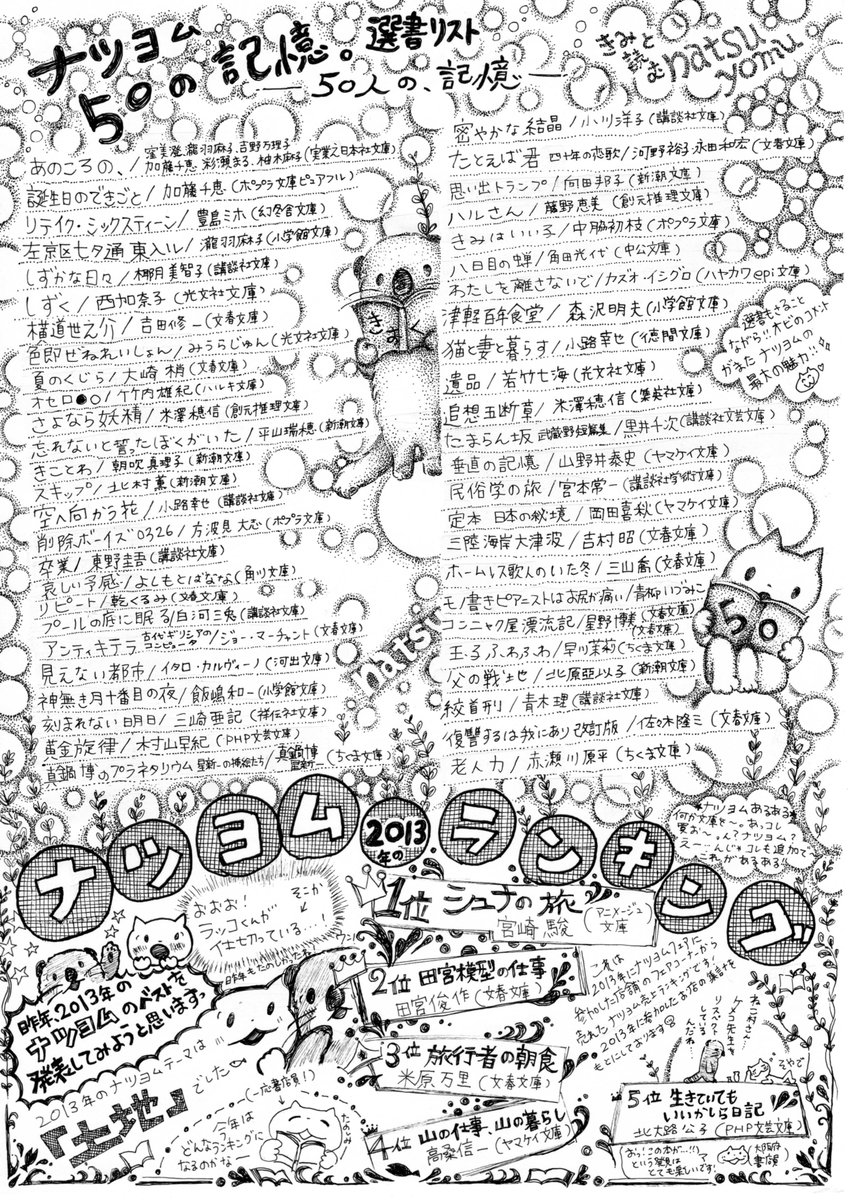 ナツヨム
50の記憶。選書リスト
―50人の、記憶―
きみと
読む
natsu
yomu
あのころの、/窪美澄、瀧羽麻子、吉野万理子
加藤千恵、彩瀬まる、柚木麻子(実業之日本社文庫)
誕生日のできごと/加藤千恵(ポプラ文庫ピュアフル)
リテイク・シックスティーン/豊島ミホ(幻冬舎文庫)
左京区七夕通東入ル/瀧羽麻子(小学館文庫)
しずかな日々/椰月美智子(講談社文庫)
しずく/西加奈子(光文社文庫)
横道世之介/吉田修一(文春文庫)
色即ぜねれいしょん/みうらじゅん(光文社文庫)
夏のくじら/大崎梢(文春文庫)
オセロ●○/竹内雄紀(ハルキ文庫)
さよなら妖精/米澤穂信(創元推理文庫)
忘れないと誓ったぼくがいた/平山瑞穂(新潮文庫)
きことわ/朝吹真理子(新潮文庫)
スキップ/北村薫(新潮文庫)
空へ向かう花/小路幸也(講談社文庫)
削除ボーイズ0326/方波見大志(ポプラ文庫)
卒業/東野圭吾(講談社文庫)
哀しい予感/よしもとばなな(角川文庫)
リピート/乾くるみ(文春文庫)
プールの底に眠る/白河三兎(講談社文庫)
アンティキテラ 古代ギリシアのコンピュータ/ジョー・マーチャント(文春文庫)
見えない都市/イタロ・カルヴィーノ(河出文庫)
神無き月十番目の夜/飯嶋和一(小学館文庫)
刻まれない明日/三崎亜記(祥伝社文庫)
黄金旋律/村山早紀(PHP文芸文庫)
真鍋博のプラネタリウム 星新一の挿絵たち/真鍋博 星新一(ちくま文庫)
密やかな結晶/小川洋子(講談社文庫)
たとえば君 四十年の恋歌/河野裕子 永田和宏(文春文庫)
思い出トランプ/向田邦子(新潮文庫)
ハルさん/藤野恵美(創元推理文庫)
きみはいい子/中脇初枝(ポプラ文庫)
八日目の蝉/角田光代(中公文庫)
わたしを離さないで/カズオ・イシグロ(ハヤカワepi文庫)
津軽百年食堂/森沢明夫(小学館文庫)
猫と妻と暮らす/小路幸也(徳間文庫)
遺品/若竹七海(光文社文庫)
追想五断章/米澤穂信(集英社文庫)
たまらん坂 武蔵野短篇集/黒井千次(講談社文芸文庫)
垂直の記憶/山野井泰史(ヤマケイ文庫)
民俗学の旅/宮本常一(講談社学術文庫)
定本 日本の秘境/岡田喜秋(ヤマケイ文庫)
三陸海岸大津波/吉村昭(文春文庫)
ホームレス歌人のいた冬/三山喬(文春文庫)
モノ書きピアニストはお尻が痛い/青柳いづみこ(文春文庫)
コンニャク屋漂流記/星野博美(文春文庫)
玉ろふわふわ/早川茉莉(ちくま文庫)
父の戦地/北原亞以子(新潮文庫)
絞首刑/青木理(講談社文庫)
復讐するは我にあり 改訂版/佐木隆三(文春文庫)
老人力/赤瀬川原平(ちくま文庫)
選書もさること
ながら!!オビのコメント
がまたナツヨムの
最大の魅力…!
きおく
50
natsu
ナツヨムあるある
何か文庫を〜。あっコレ
要お〜ん?ナツヨム?
コレも追加で
これがあるある!!
ナツヨム2013年のランキング
おおお!
ラッコくんが
仕切っている…!
そこか
昨年、2013年の
ナツヨムのベストを
発表してみようと思いますっ
2013年のナツヨムテーマは
「土地」でした
1位 シュナの旅
宮崎駿(アニメージュ文庫)
2位 田宮模型の仕事
田宮俊作(文春文庫)
3位 旅行者の朝食
米原万里(文春文庫)
4位 山の仕事、山の暮らし
高桑信一(ヤマケイ文庫)
5位 生きていても
いいかしら日記
北大路公子(PHP文芸文庫)
これは
2013年にナツヨムフェアに
参加した店舗のフェアコーナーから
売れたナツヨム売上ランキングです。
2013年に参加したお店の集計を
もとにしております
(一応書店員!)
今年は
どんなランキングに
なるのかなー
おっ!この本が…!!
という発見は
とても楽しいです!